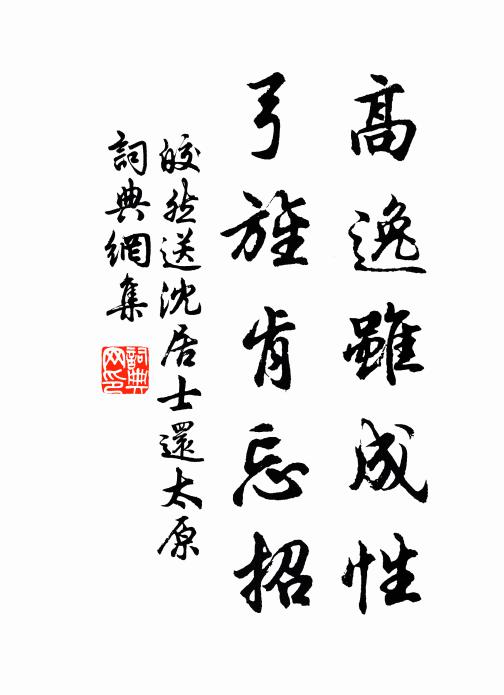 高逸雖成性
弓旌肯忘招
皎然送沈居士還太原
詞典網集
詞典
网印